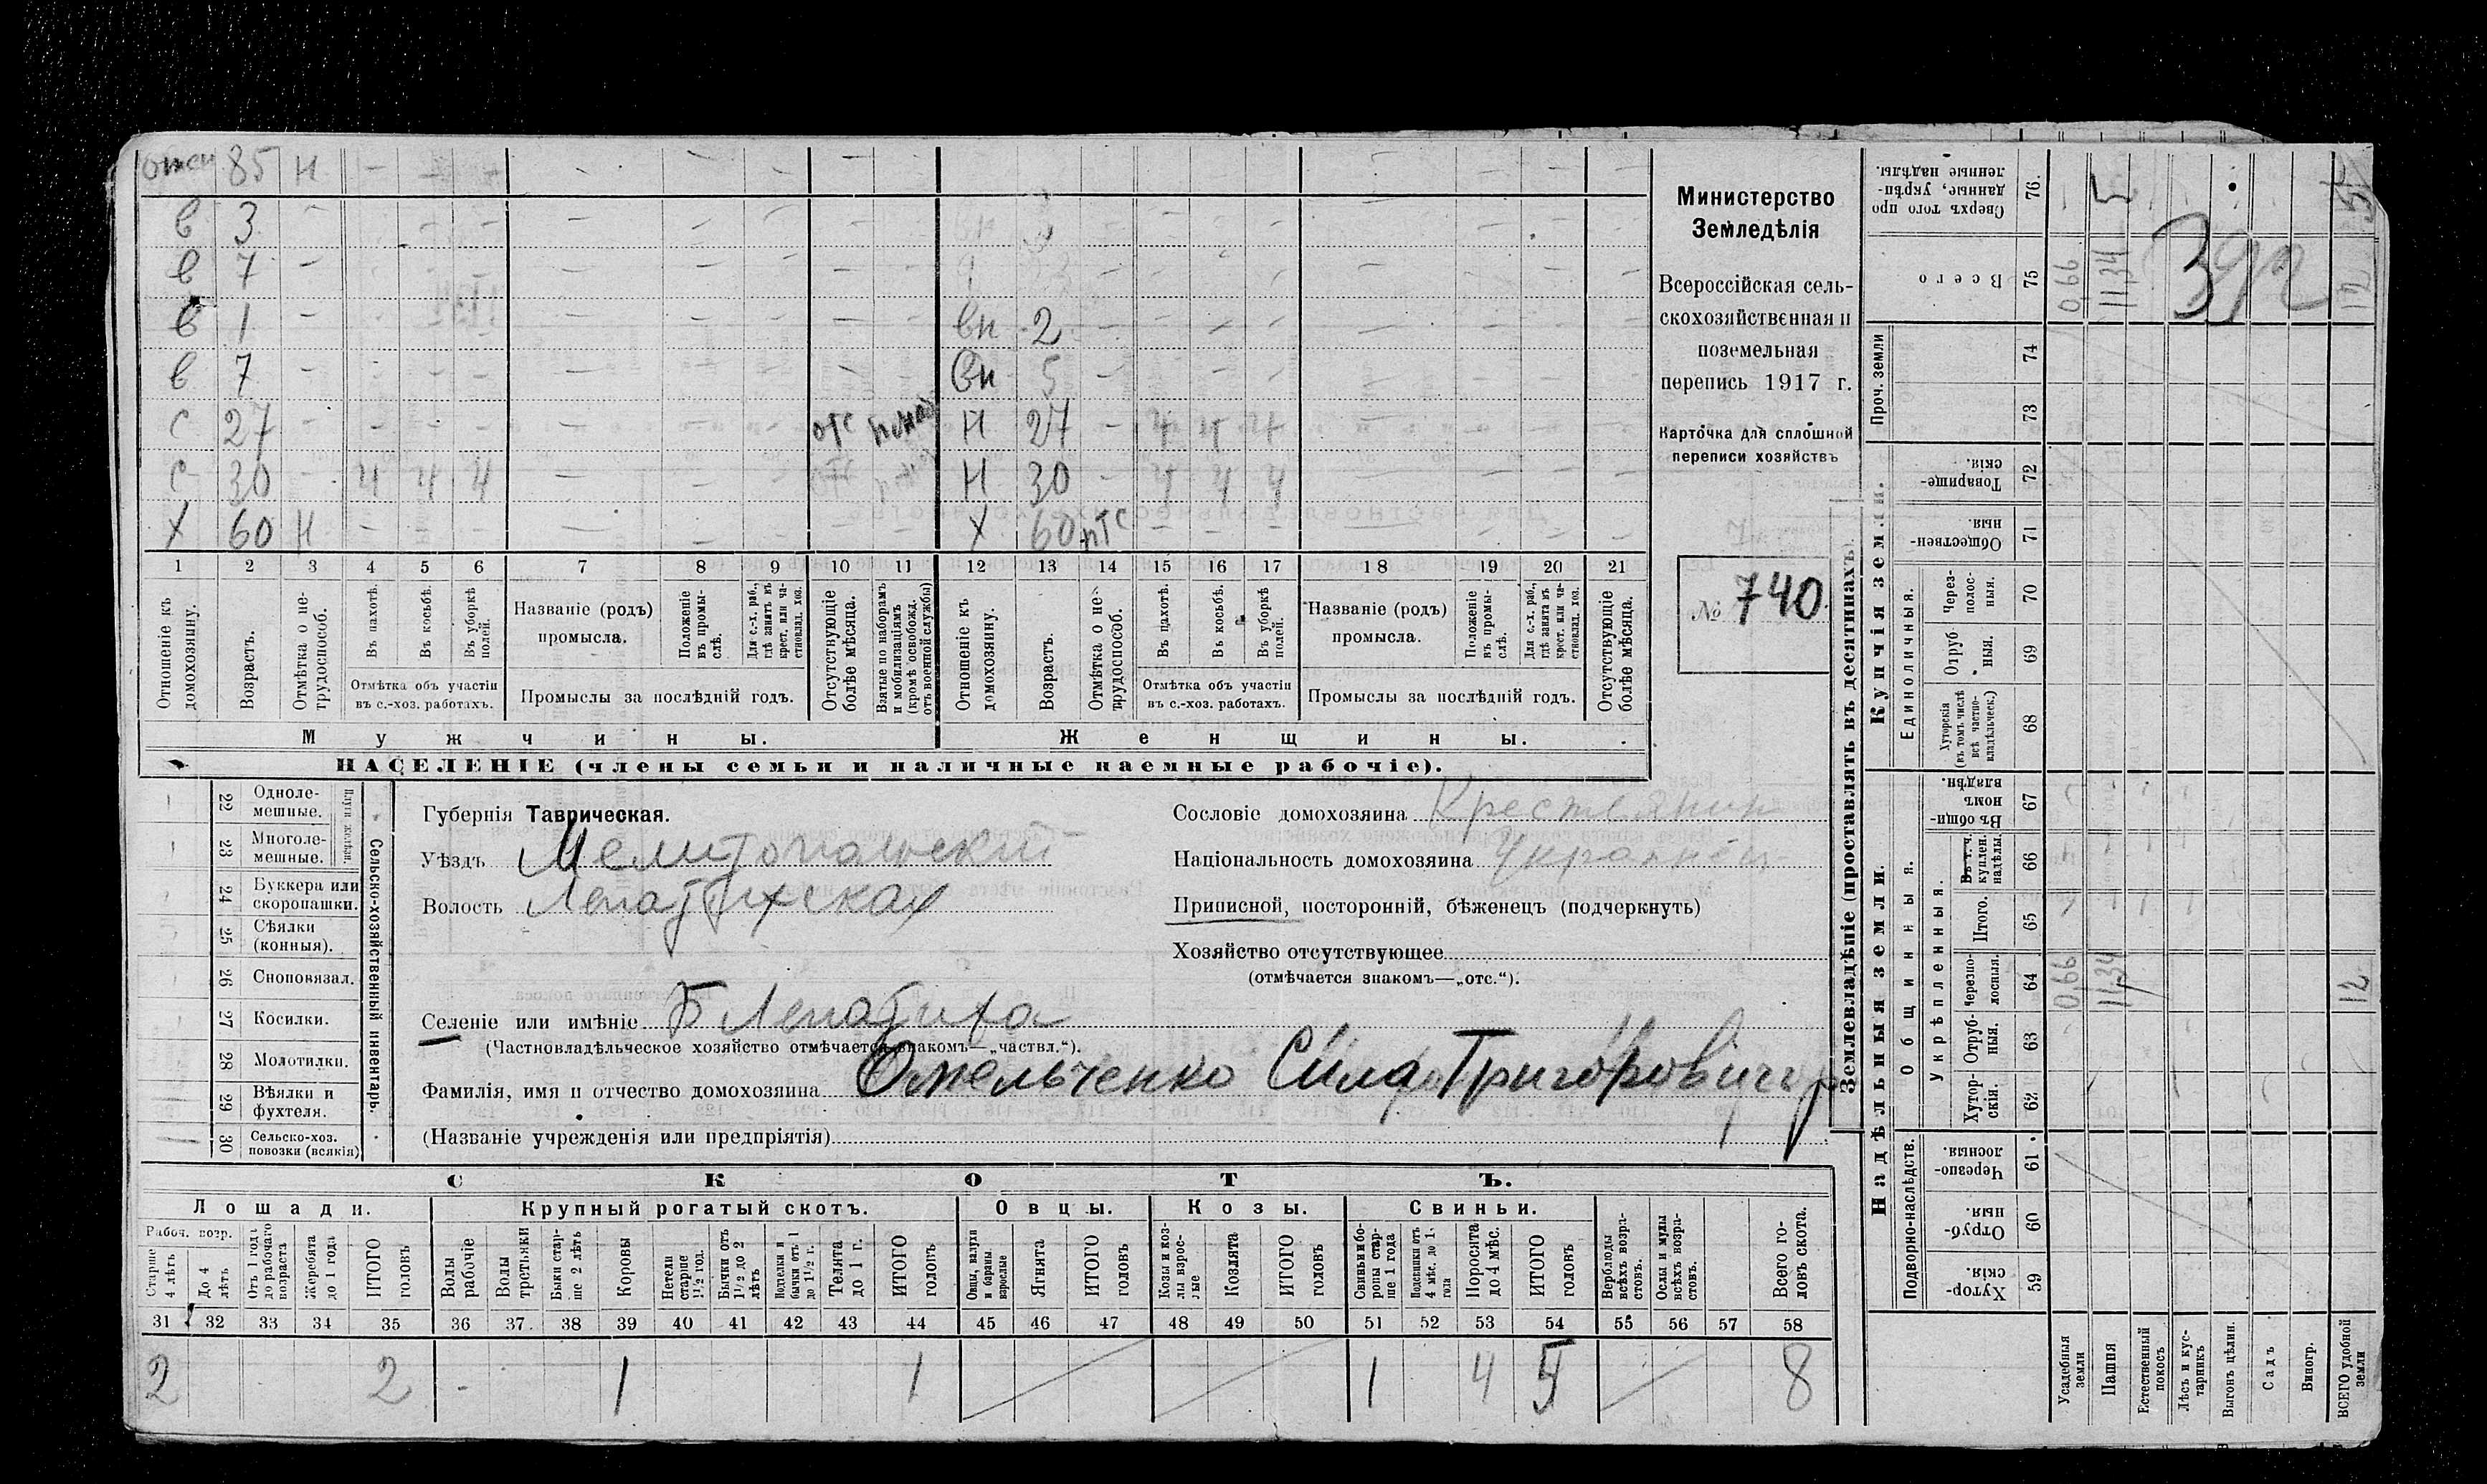 Отец 85 Н - - - - - - - - - - - - - - - - - -
в 3 - - - - - - - - - -
в 7 - - - - - - - - - -
в 1 - - - - - - - - - - вн 2 - - - - - - - -
в 7 - - - - - - - - - - вн 5 - - - - - - - -
с 27 - - - - - - - отс Н 27 - 4 4 4 - - - -
с 30 - 4 4 4 - - - отс Н 30 - 4 4 4 - - - -
Х 60 Н - - - - - - - - Х 60 птс - - - - - - -
1 2 3 4 5 6 7 8 9 10 11 12 13 14 15 16 17 18 19 20 21
Отношеніе къ домохозяину.
Возрастъ.
Отмѣтка о не-трудоспособ.
Въ пахотѣ.
Въ косьбѣ.
Въ уборкѣ полей.
Отмѣтка объ участіи въ с.-хоз. работахъ.
Названіе (родъ) промысла.
Положеніе въ промы-слѣ.
Для с.-х. раб., гдѣ занятъ въ крест. или ча-стновлад. хоз.
Промыслы за послѣдній годъ.
Отсутствующіе болѣе мѣсяца.
Взятые по наборамъ и мобилизаціямъ (кромѣ освобожд. отъ военной службы)
Отношеніе къ домохозяину.
Возрастъ.
Отмѣтка о не-трудоспособ.
Въ пахотѣ.
Въ косьбѣ.
Въ уборкѣ полей.
Отмѣтка объ участіи въ с.-хоз. работахъ.
Названіе (родъ) промысла.
Положеніе въ промы-слѣ.
Для с.-х. раб., гдѣ занята въ крест. или ча-стновлад. хоз.
Промыслы за послѣдній годъ.
Отсутствующіе болѣе мѣсяца.
Мужчины.
Женщины.
НАСЕЛЕНІЕ (члены семьи и наличные наемные рабочіе).
Министерство
Земледѣлія
Всероссійская сель-
скохозяйственная и
поземельная
перепись 1917 г.
Карточка для сплошной
переписи хозяйствъ
№ 740
22 Одноле-мешные.
23 Многоле-мешные.
Плуги желѣзн.
24 Буккера или скоропашки.
25 Сѣялки (конныя).
26 Сноповязал.
27 Косилки.
28 Молотилки.
29 Вѣялки и фухтеля.
30 Сельско-хоз. повозки (всякія)
Сельско-хозяйственный инвентарь.
Губернія Таврическая.
Уѣздъ Мелитопольскій
Волость Лепатихская
Селеніе или имѣніе Б Лепатиха
(Частновладѣльческое хозяйство отмѣчается знакомъ—„частвл.“).
Фамилія, имя и отчество домохозяина Омельченко Сила Григоровичъ
(Названіе учрежденія или предпріятія)
Сословіе домохозяина Крестьянин
Національность домохозяина Украинец
Приписной, посторонній, бѣженецъ (подчеркнуть)
Хозяйство отсутствующее
(отмѣчается знакомъ—„отс.“).
СКОТЪ.
Лошади.
Крупный рогатый скотъ.
Овцы.
Козы.
Свиньи.
Рабоч. возр.
Старше 4 лѣтъ
До 4 лѣтъ
Отъ 1 года до рабочаго возраста
Жеребята до 1 года
ИТОГО головъ
Волы рабочіе
Волы третьяки
Быки стар-ше 2 лѣтъ
Коровы
Нетели старше 1½ год.
Бычки отъ 1½ до 2 лѣтъ
Подтелки и бычки отъ 1 до 1½ г.
Телята до 1 г.
ИТОГО головъ
Овцы, валухи и бараны взрослые
Ягнята
ИТОГО головъ
Козы и коз-лы взрос-лые
Козлята
ИТОГО головъ
Свиньи и бо-ровы стар-ше 1 года
Подсвинки отъ 4 мѣс. до 1 года
Поросята до 4 мѣс.
ИТОГО головъ
Верблюды всѣхъ возра-стовъ.
Ослы и мулы всѣхъ возра-стовъ.
Всего го-ловъ скота.
31 32 33 34 35 36 37. 38 39 40 41 42 43 44 45 46 47 48 49 50 51 52 53 54 55 56 57 58
2 2 - 1 1 1 4 5 8
Землевладѣніе (проставлять въ десятинахъ).
Надѣльныя земли.
Купчія земли.
Проч. земли
Подворно-наслѣдств.
Общинныя.
Укрѣпленныя.
Единоличныя.
Сверхъ того про-данные, укрѣп-ленные надѣлы. 76.
Всего 75
74
73
Товарище-скія. 72
Обществен-ныя. 71
Через-полос-ныя. 70
Отруб-ныя. 69
Хуторскія (въ томъ числѣ всѣ частно-владѣльческ.) 68
Въ общин-номъ владѣн. 67
Въ т. ч. куплен. надѣлы. 66
Итого. 65
Черезпо-лосныя. 64
Отруб-ныя. 63
Хутор-скія. 62
Черезпо-лосныя. 61
Отруб-ныя. 60
Хутор-скія. 59
Усадебныя земли 0,66 0,66
Пашня 11,34 11,34 5
Естественный покосъ
Лѣсъ и кус-тарникъ
Выгонъ цѣлин.
Садъ
Виногр.
ВСЕГО удобной земли 12 12 5
392